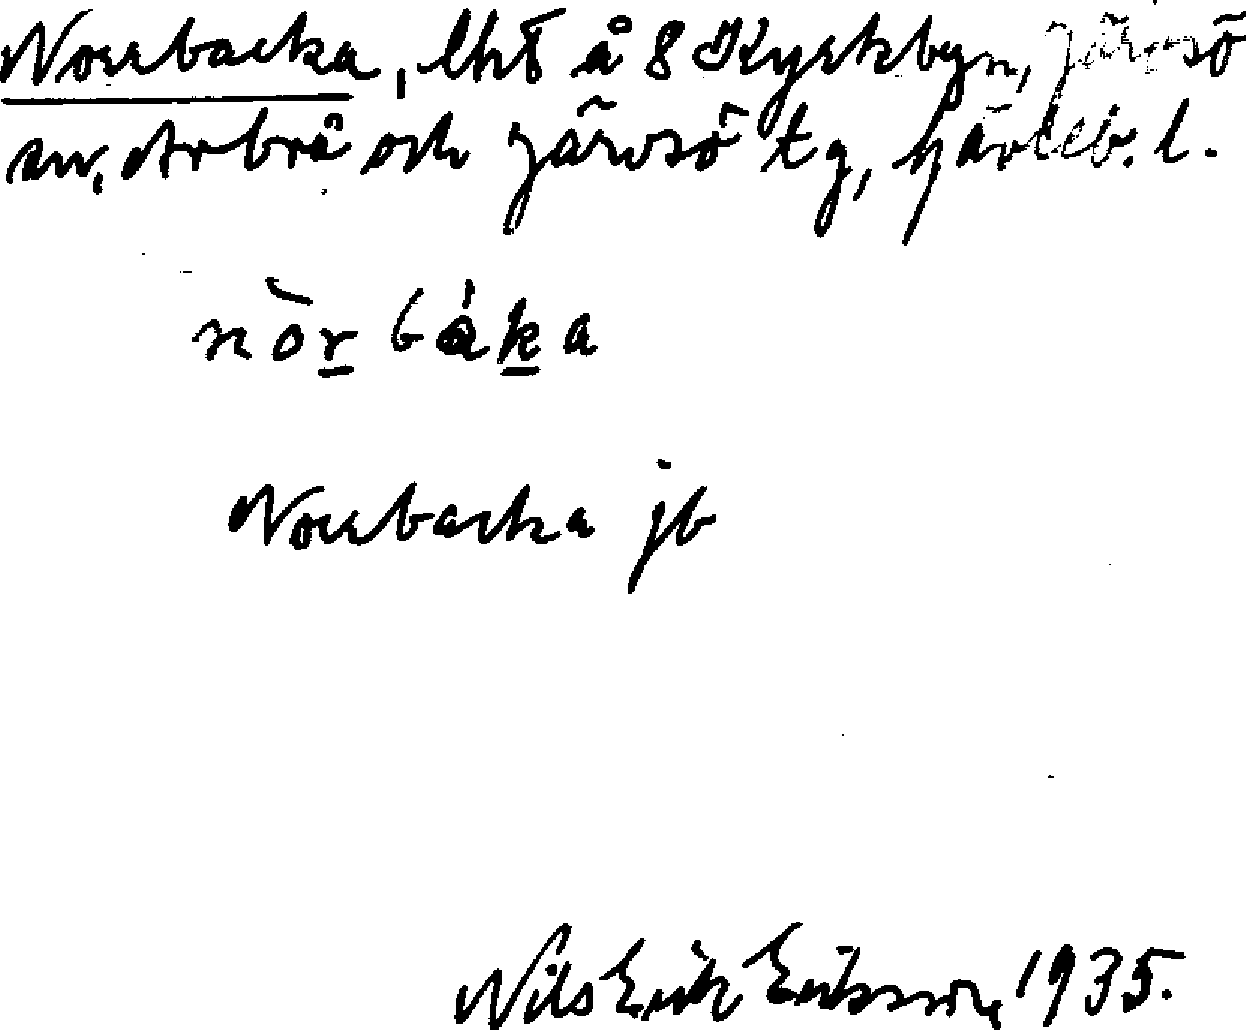 Norrbacka, lht å 8 Kyrkbyn, Järvsö
sn, Arbrå och Järvsö tg, Gävleb. l.
nòrbáka
Norrbacka jb
Nils Erik Eriksson, 1935.